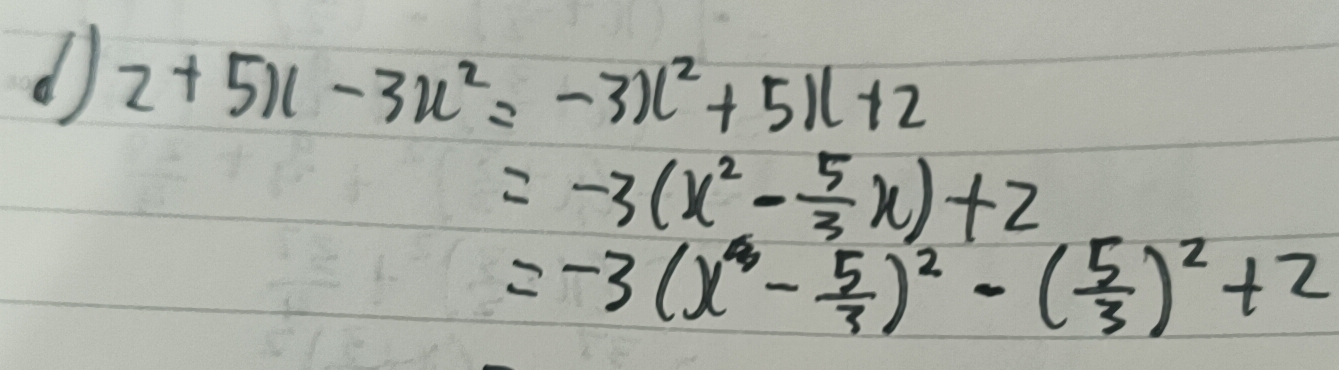 d) 2 + 5x - 3x² = -3x² + 5x + 2
= -3(x² - 5/3 x) + 2
= -3(x - 5/3)² - (5/3)² + 2